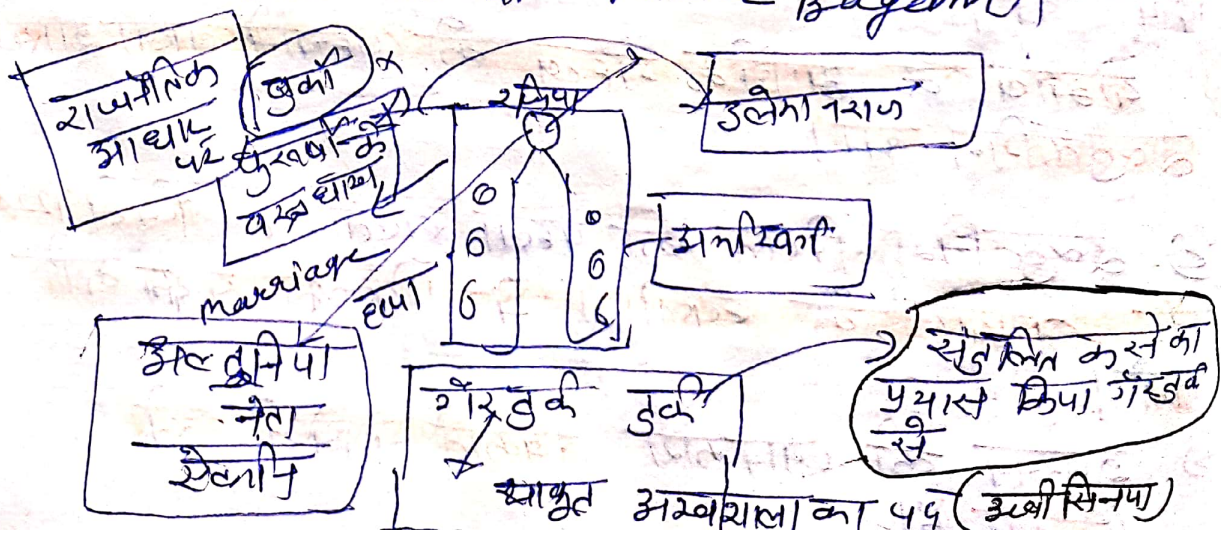 Begum
राजनैतिक
आधार
पर
बुर्का ×
पुरुषों के
वस्त्र धारण
रजिया
उलेमा नराज
अमीर वर्ग
marriage
हत्या
अल्तुनिया
नेता
गैर तुर्क तुर्क
संतुलित करने का
प्रयास किया गैर तुर्क
से
याकुत अश्वशाला का पद (अबीसिनया)